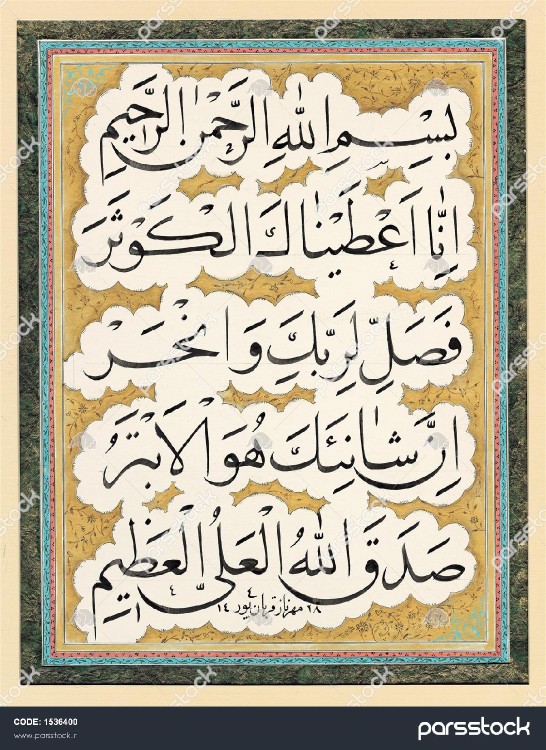 بِسْمِ اللهِ الرَّحْمٰنِ الرَّحِیمِ
اِنّٰا اَعْطَیْنٰاكَ الْکَوْثَرَ
فَصَلِّ لِرَبِّكَ وَ انْحَرْ
اِنَّ شٰانِئَكَ هُوَ الْاَبْتَرُ
صَدَقَ اللهُ الْعَلیُّ الْعَظِیمِ
مهرناز قربان‌پور
CODE: 1536400
www.parsstock.ir
parsstock